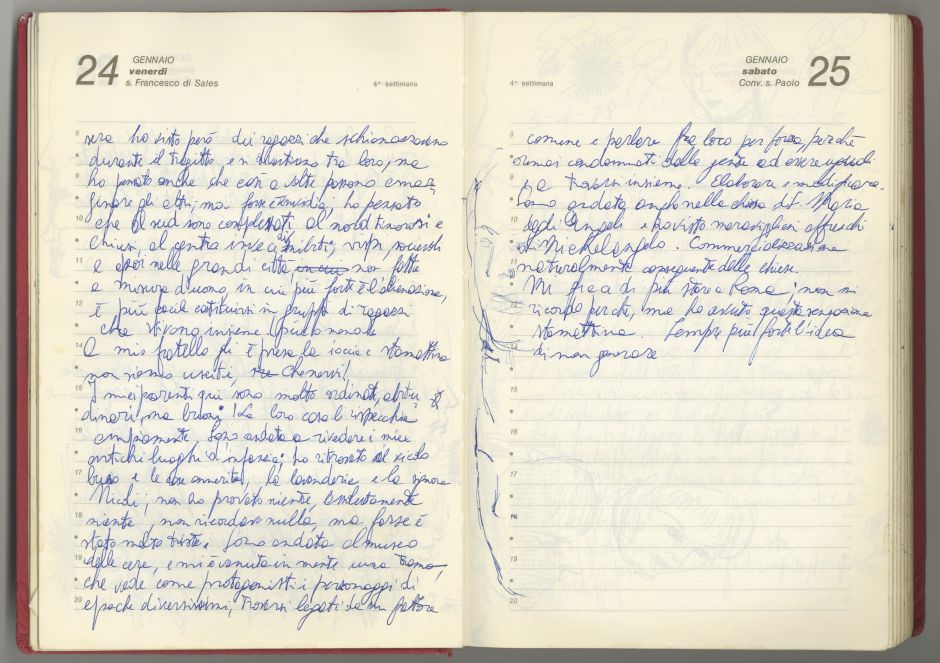 24 GENNAIO
venerdì
s. Francesco di Sales
4ª settimana
sera ho visto però dei ragazzi che schiamazzavano
durante il tragitto e si divertivano tra loro, ma
ho pensato anche che così a volte possono emar=
ginare gli altri, ma forse è invidia; ho pensato
che al sud sono complessati, al nord timorosi e
chiusi, al centro invece umilisti, rissosi, socievoli
e così nelle grandi città in cui non fatte
a misura d'uomo, in cui più forte è l'alienazione,
è più facile costituirsi in gruppo di ragazzi
che vivono insieme
A mio fratello gli è presa la ioccia e stamattina
non siamo usciti, che nervi!
I miei parenti qui sono molto ordinati, abitu=
dinari, ma buoni! La loro casa li rispecchia
ampiamente. Sono andata a rivedere i miei
antichi luoghi d'infanzia; ho ritrovato il vicolo
buio e le case annerite, la lavanderie e la signora
Nicoli; non ho provato niente, assolutamente
niente, non ricordavo nulla, ma forse è
stato molto triste. Sono andata al museo
delle cere, e mi è venuta in mente una trama,
che vede come protagonisti i personaggi di
epoche diversissime, trovarsi legati da un fattore
GENNAIO 25
sabato
Conv. s. Paolo
4ª settimana
comune e parlare fra loro per forza, perché
ormai condannati dalla gente ad essere
e a trovarsi insieme. Elaborare e modificare.
Sono andata anche nella chiesa di S. Maria
degli Angeli e ho visto meravigliosi affreschi
di Michelangelo. Commercializzazione
naturalmente conseguente delle chiese.
Mi frega di più stare a Roma; non mi
ricordo perché, ma ho avuto questa sensazione
stamattina. Sempre più forte l'idea
di non generare